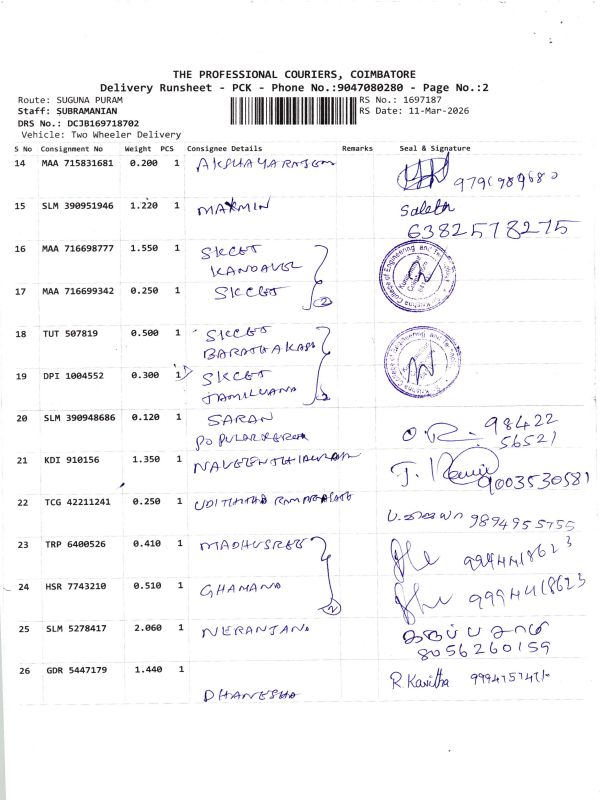 THE PROFESSIONAL COURIERS, COIMBATORE
Delivery Runsheet - PCK - Phone No.:9047080280 - Page No.:2
Route: SUGUNA PURAM
RS No.: 1697187
Staff: SUBRAMANIAN
RS Date: 11-Mar-2026
DRS No.: DCJB169718702
Vehicle: Two Wheeler Delivery
S No Consignment No Weight PCS Consignee Details Remarks Seal & Signature
14 MAA 715831681 0.200 1
15 SLM 390951946 1.220 1 Saleth
6382578275
16 MAA 716698777 1.550 1 SKCET
17 MAA 716699342 0.250 1 SKCET
18 TUT 507819 0.500 1 SKCET
19 DPI 1004552 0.300 1 SKCET
20 SLM 390948686 0.120 1 SARAN 98422
56521
21 KDI 910156 1.350 1 9003530581
22 TCG 42211241 0.250 1 9894955755
23 TRP 6400526 0.410 1 MADHUSREE 9994418623
24 HSR 7743210 0.510 1 GHAMANA 9994418623
25 SLM 5278417 2.060 1 NERANJANA கருப்பசாமி
8056260159
26 GDR 5447179 1.440 1 R. Kavitha
DHANESHA